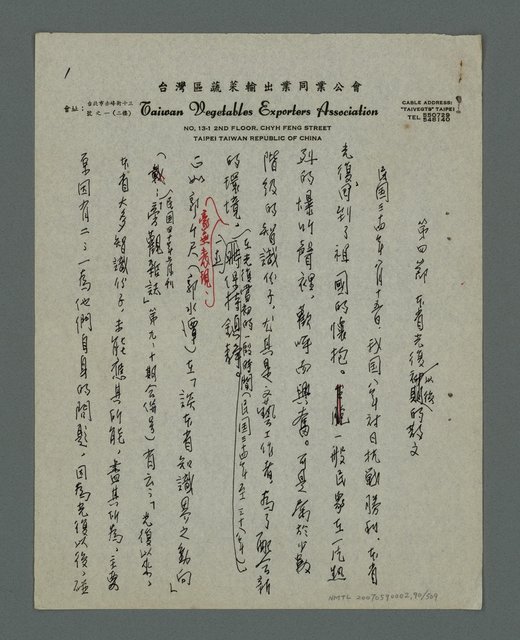 1
台灣區蔬菜輸出業同業公會
會址：台北市赤峰街十三號之一（二樓）
Taiwan Vegetables Exporters Association
NO, 13-1 2ND FLOOR, CHYH FENG STREET
TAIPEI TAIWAN REPUBLIC OF CHINA
CABLE ADDRESS:
"TAIVEGTB" TAIPEI
TEL 550729
548140
第四節 本省光復以後初期的散文
民國三十四年八月十五日，我國八年對日抗戰勝利，本省
光復，回到了祖國的懷抱。一般民眾在一片熱
烈的爆竹聲裡，歡呼而興奮。可是屬於少數
階級的智識份子，尤其是文藝工作者，為了配合新
的環境，在光復當初的一段時間（民國三十四年至三十八年）
保持鎮靜。
正如郭水潭在「談本省知識界之動向」
（民國四十年二月刊
載：旁觀雜誌」第九、十期合併號）有云：「光復以來，
本省大多智識份子，未能應其所能，盡其所為，主要
原因有二：一為他們自身的問題，因為光復以後，碰
NMTL 20070590002,90/509